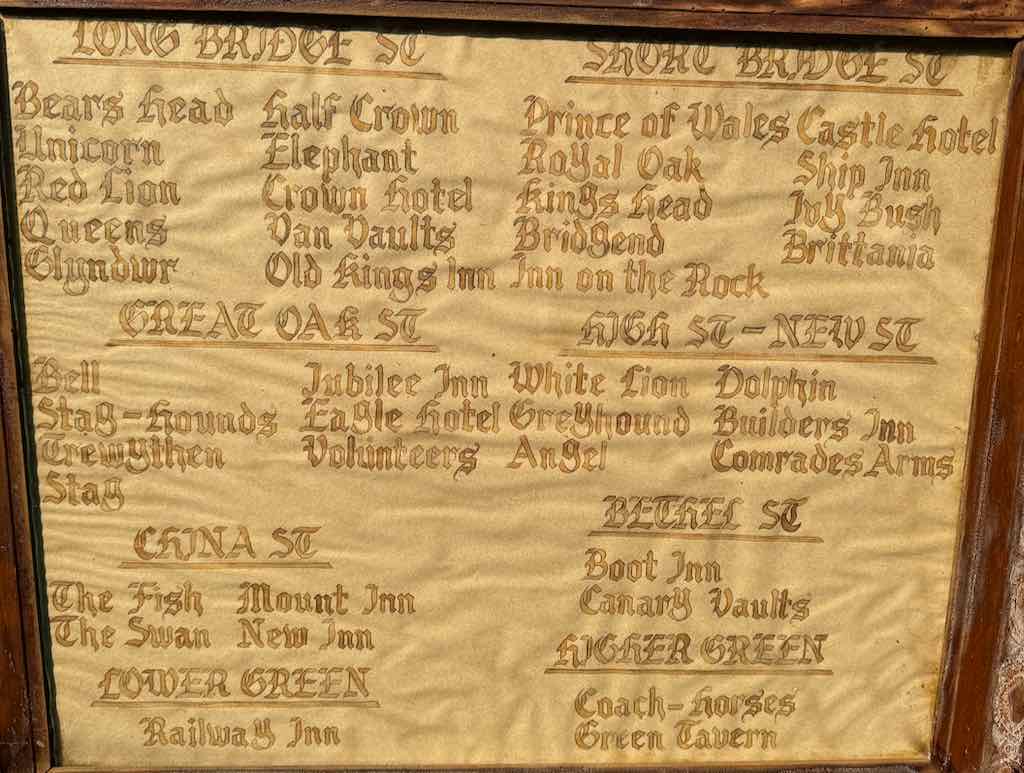 LONG BRIDGE ST
Bears Head Half Crown
Unicorn Elephant
Red Lion Crown Hotel
Queens Van Vaults
Glyndwr Old Kings Inn
SHORT BRIDGE ST
Prince of Wales Castle Hotel
Royal Oak Ship Inn
Kings Head Ivy Bush
Bridgend Brittania
Inn on the Rock
GREAT OAK ST
Bell Jubilee Inn
Stag-Hounds Eagle Hotel
Trewythen Volunteers
Stag
HIGH ST - NEW ST
White Lion Dolphin
Greyhound Builders Inn
Angel Comrades Arms
CHINA ST
The Fish Mount Inn
The Swan New Inn
BETHEL ST
Boot Inn
Canary Vaults
LOWER GREEN
Railway Inn
HIGHER GREEN
Coach-Horses
Green Tavern